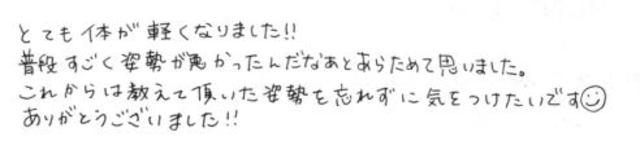 とても体が軽くなりました!!
普段すごく姿勢が悪かったんだなあとあらためて思いました。
これからは教えて頂いた姿勢を忘れずに気をつけたいです☺
ありがとうございました!!